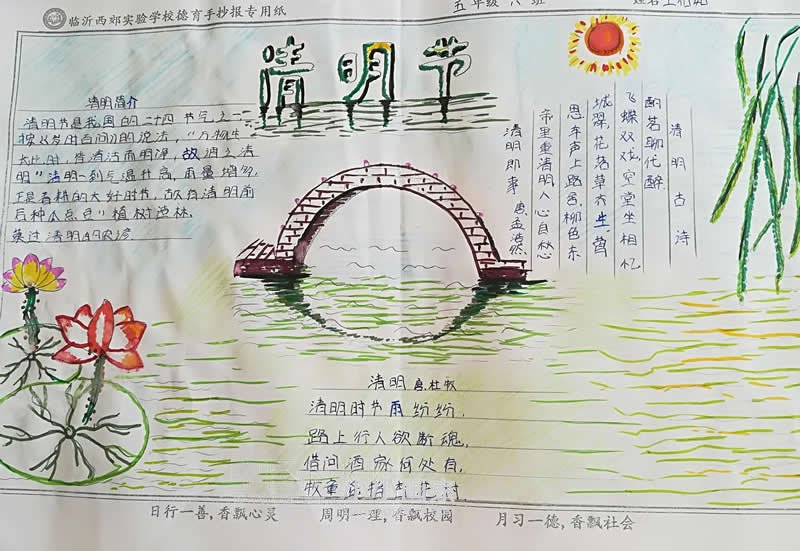 临沂西郊实验学校德育手抄报专用纸
五年级
清明节
清明简介
清明节是我国的二十四节气之一
时百问》的说法,“万物生
长此时,皆清洁而明净,故谓之清
明”清明一到气温升高,雨量增多,
正是春耕的大好时节,故有清明前
后种瓜点豆”植树造林,
莫过清明的农谚
清明古诗
清明即事 唐孟浩然
帝里重清明人心自愁
思车声上路合,柳色东
城翠,花落草木生,莺
飞蝶双双戏,空堂坐相忆
酌茗聊代醉
清明 唐.杜牧
清明时节雨纷纷,
路上行人欲断魂,
借问酒家何处有,
牧童遥指杏花村
日行一善,香飘心灵 周明一理,香飘校园 月习一德,香飘社会